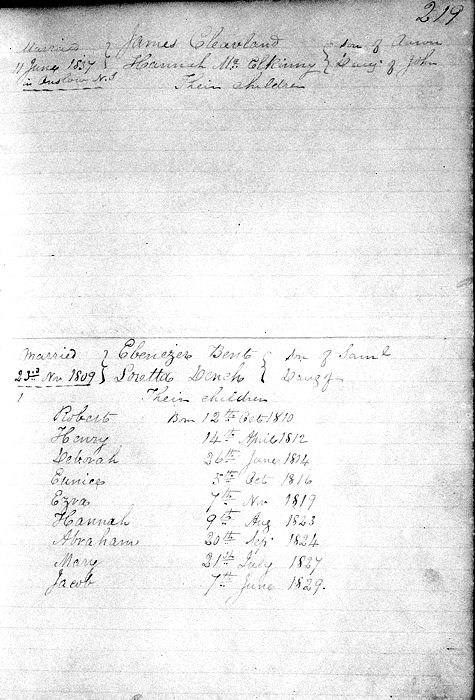 219
Married { James Cleaveland } Son of Aaron
11 June 1837 { Hannah Mc Elkinny } Daug. of John
in Onslow N.S
Their children
Married } Ebenezer Bent { Son of Saml
23rd Nov 1809 } Loretta Dench { Daug of
1 Their children
Robert Born 12th Oct 1810
Henry 14th April 1812
Deborah 26th June 1814
Eunice 5th Oct 1816
Ezra 7th Nov 1819
Hannah 9th Aug 1823
Abraham 20th Sep. 1824
Mary 21st July 1827
Jacob 7th June 1829.